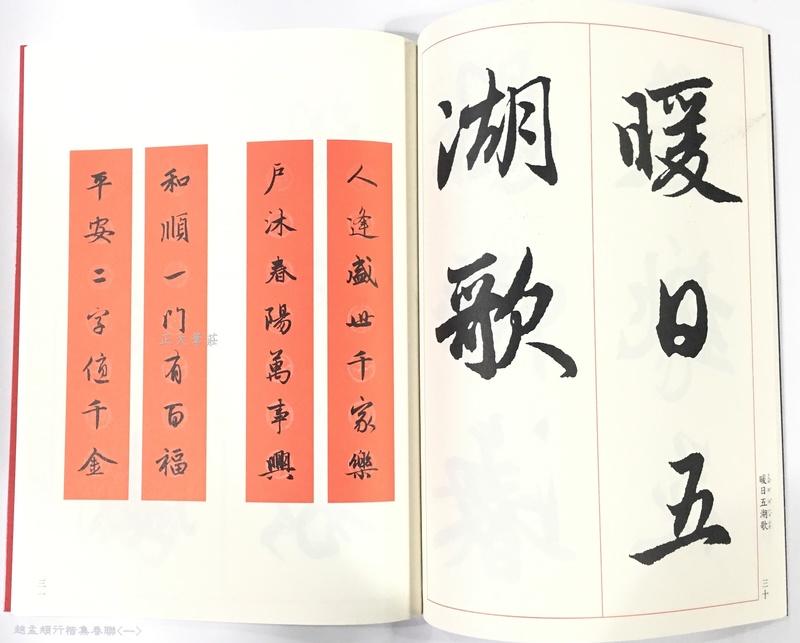 暖日五
湖歌
暖日五湖歌
三十
人逢盛世千家樂
戶沐春陽萬事興
和順一門有百福
平安二字值千金
正大筆莊
三一
趙孟頫行楷集春聯<一>